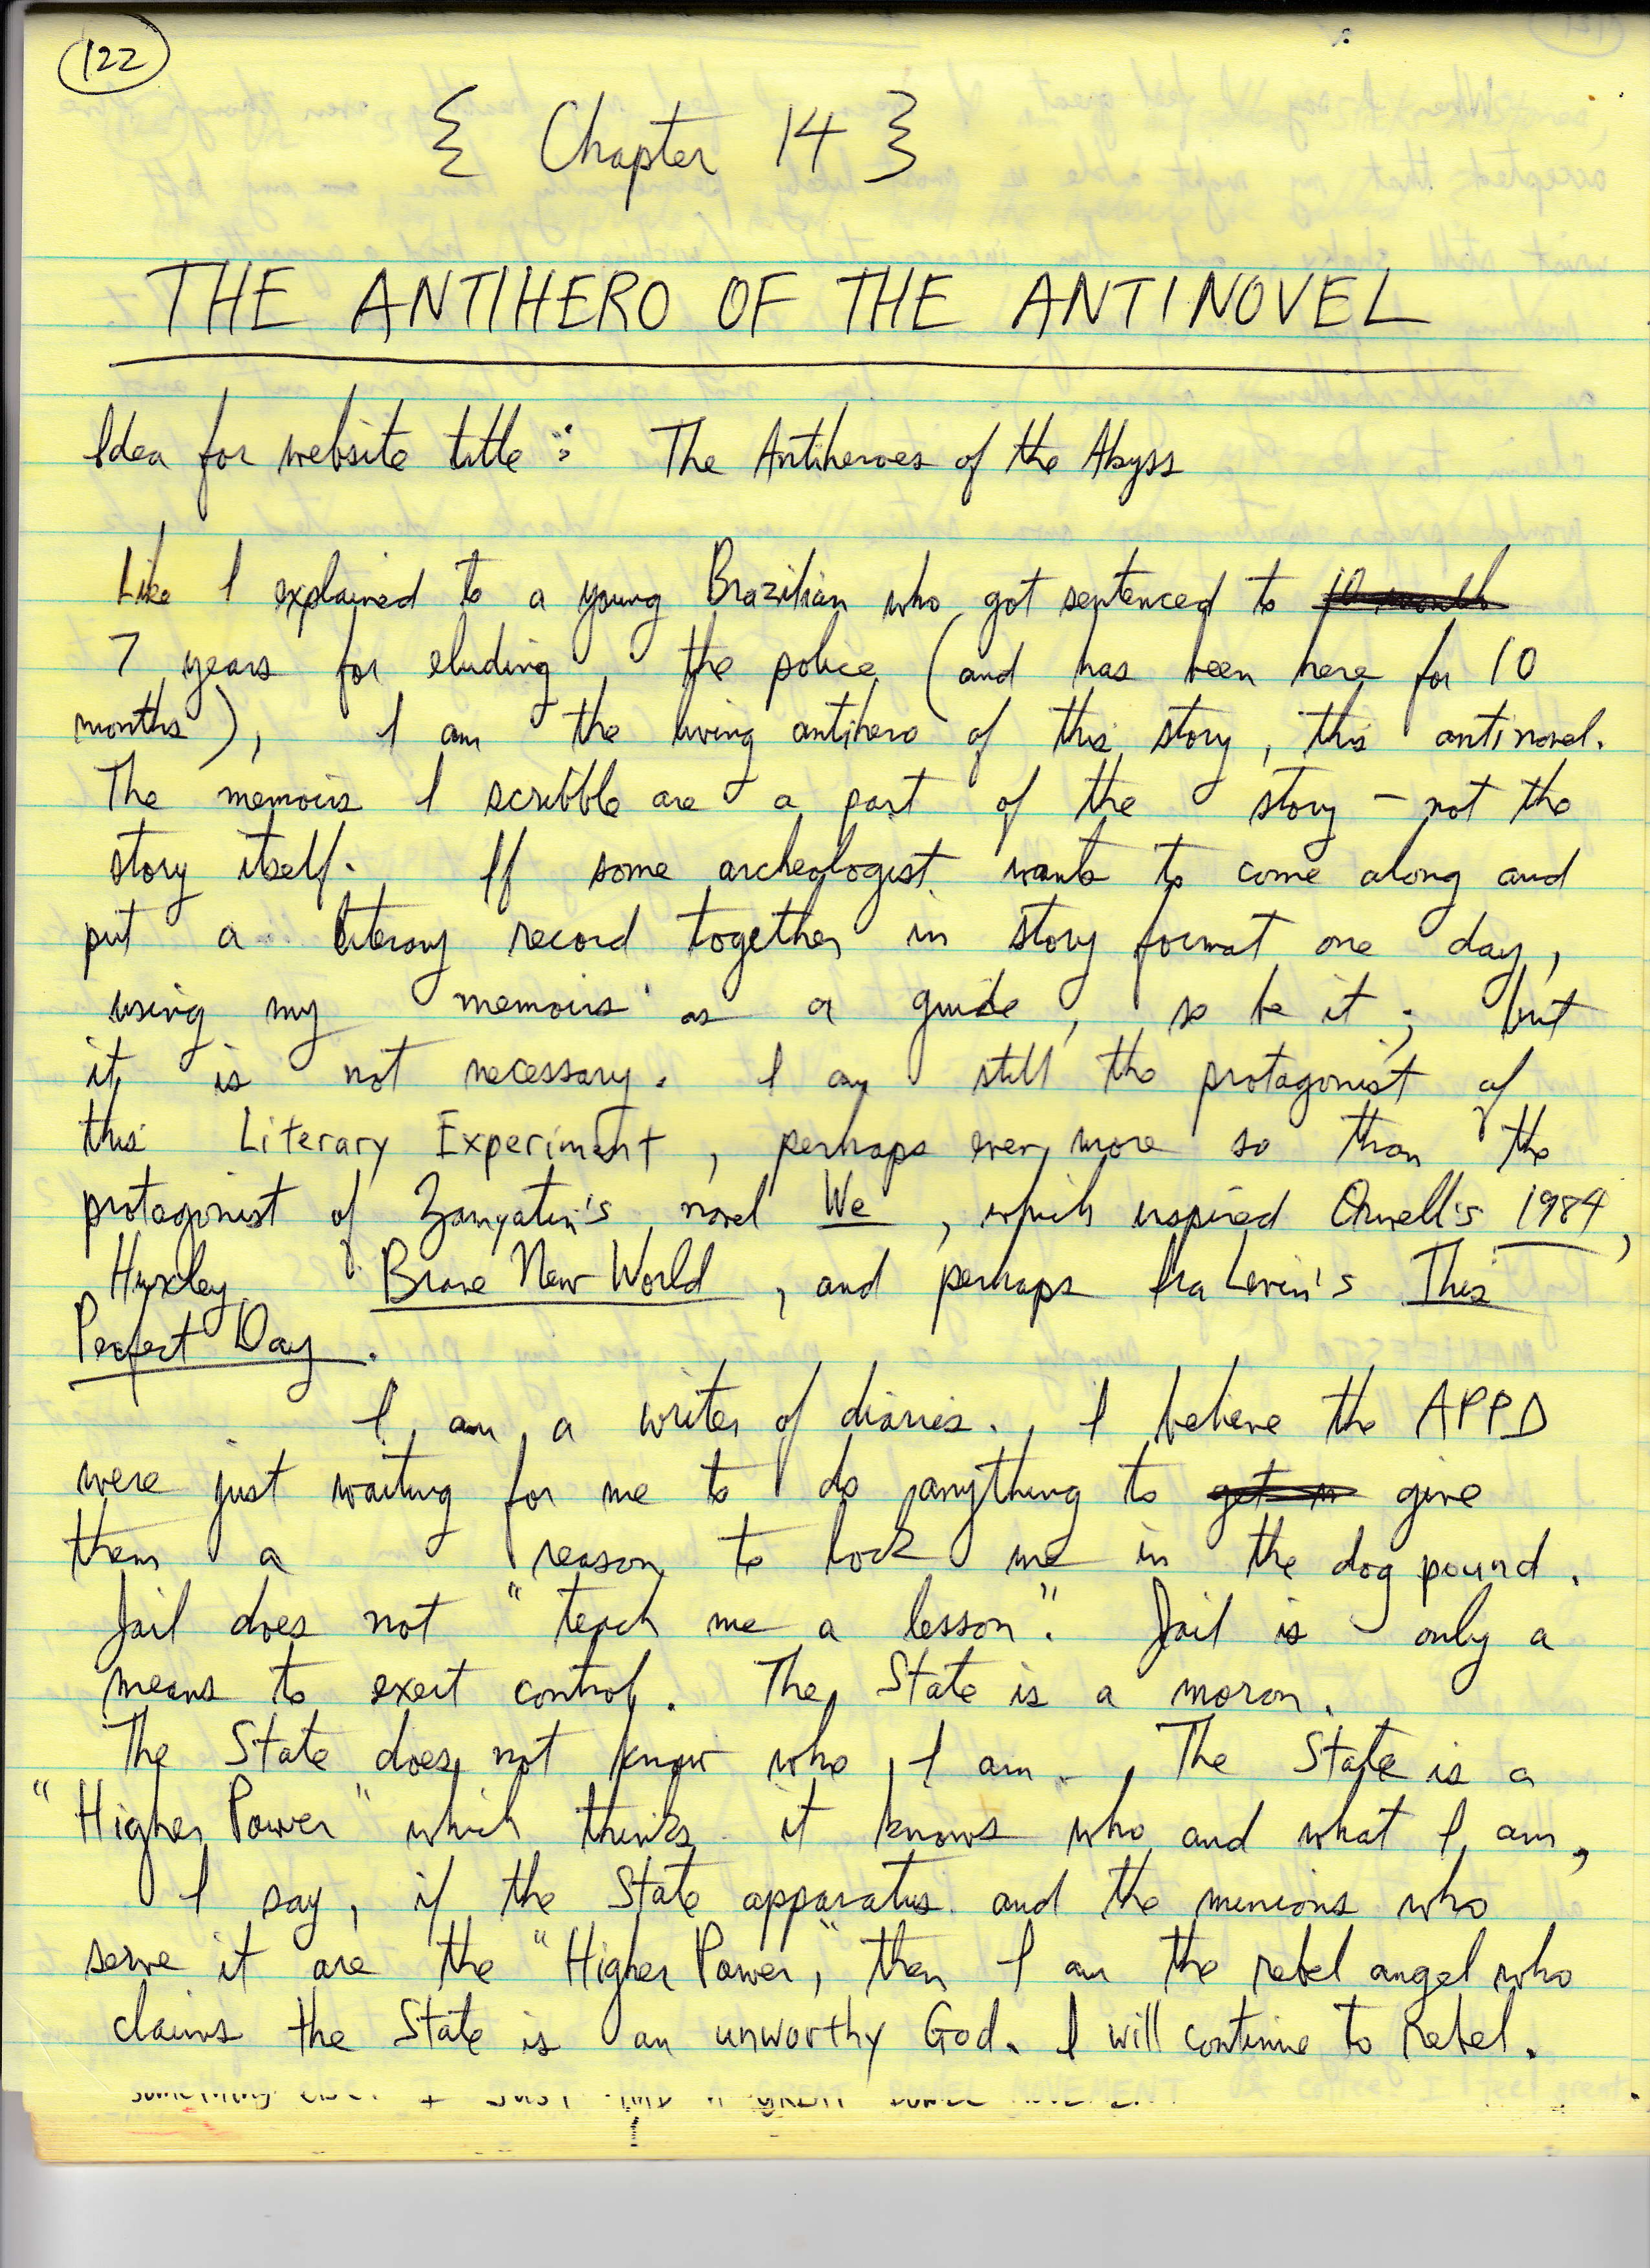 122
{ Chapter 14 }
THE ANTIHERO OF THE ANTINOVEL
Idea for website title: The Antiheroes of the Abyss
Like I explained to a young Brazilian who got sentenced to 10 month
7 years for eluding the police (and has been here for 10
months), I am the living antihero of this story, this antinovel.
The memoirs I scribble are a part of the story - not the
story itself. If some archeologist wants to come along and
put a literary record together in story format one day,
using my memoirs as a guide, so be it; but
it is not necessary. I am still the protagonist of
this Literary Experiment, perhaps even more so than the
protagonist of Zamyatin's novel We, which inspired Orwell's 1984,
Huxley Brave New World, and perhaps Ira Levin's This
Perfect Day.
I am a writer of diaries. I believe the APPD
were just waiting for me to do anything to give
them a reason to lock me in the dog pound.
Jail does not "teach me a lesson". Jail is only a
means to exert control. The State is a moron.
The State does not know who I am. The State is a
"Higher Power" which thinks it knows who and what I am,
I say, if the State apparatus and the minions who
serve it are the "Higher Power," then I am the rebel angel who
claims the State is an unworthy God. I will continue to Rebel.